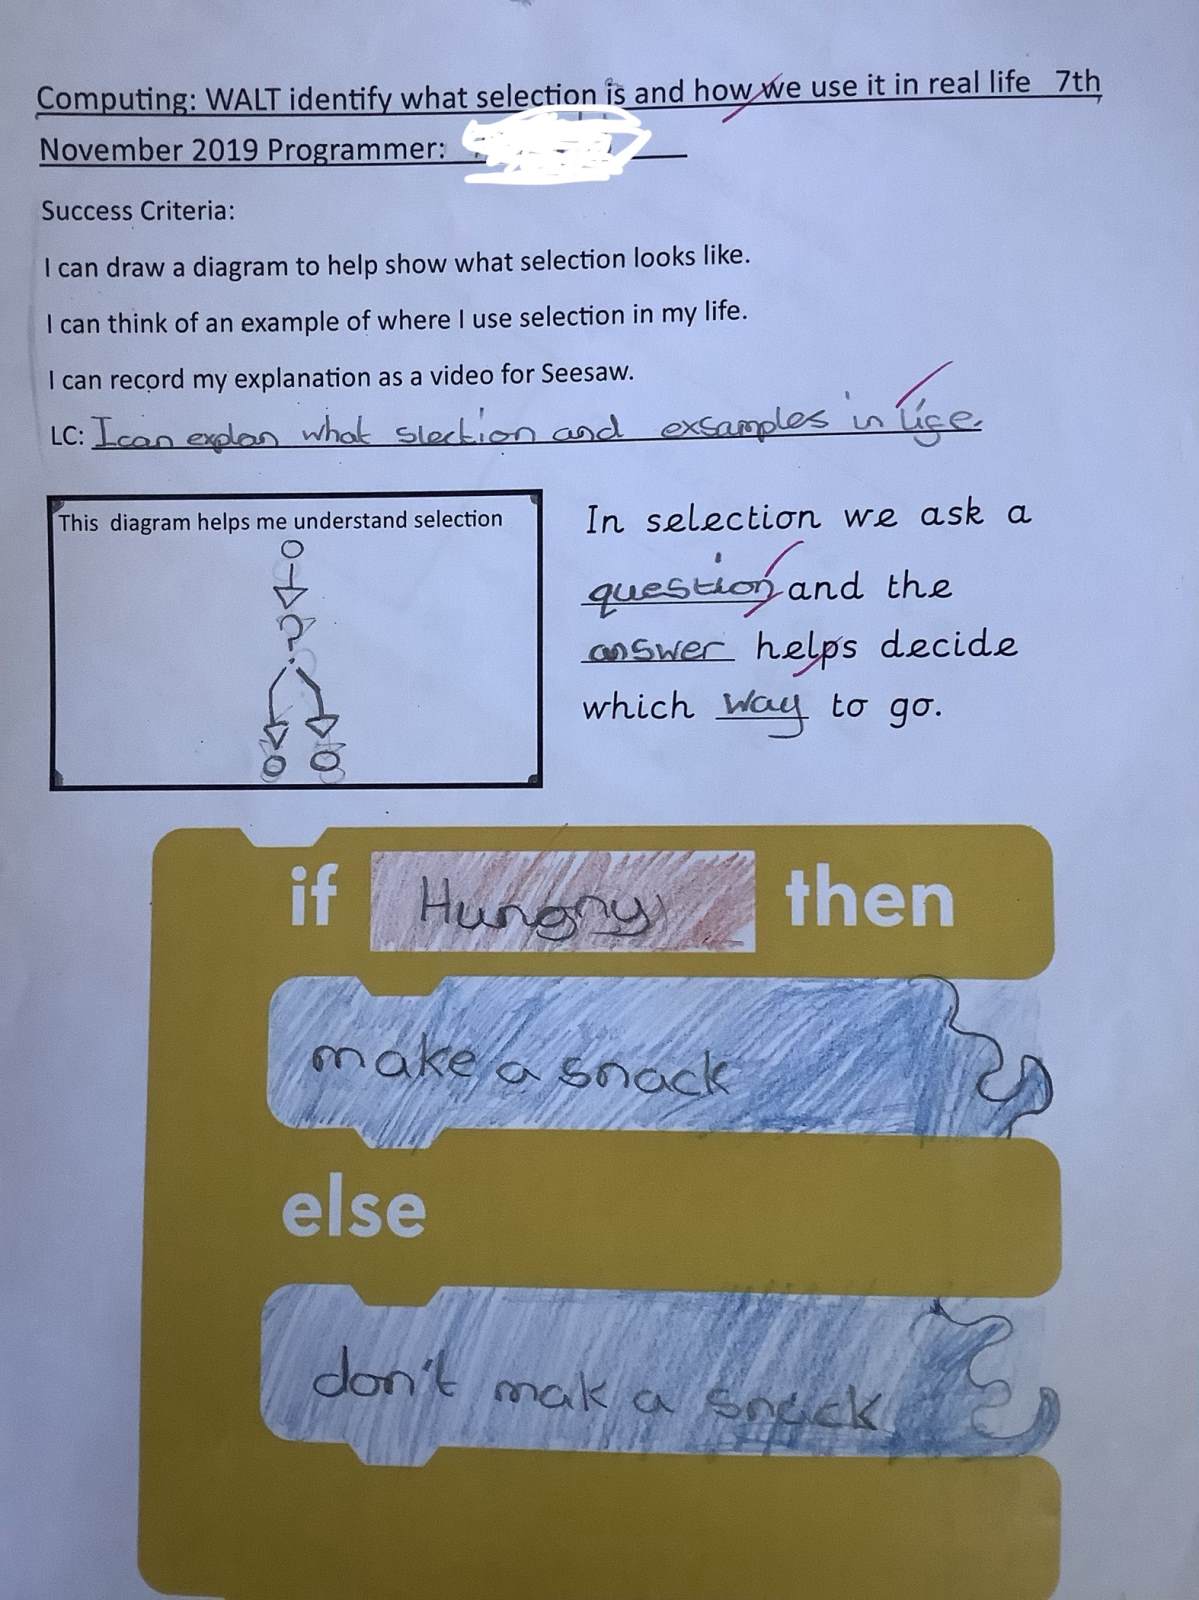 Computing: WALT identify what selection is and how we use it in real life 7th
November 2019 Programmer:
Success Criteria:
I can draw a diagram to help show what selection looks like.
I can think of an example of where I use selection in my life.
I can record my explanation as a video for Seesaw.
LC: I can explan what slection and exsamples in life.
This diagram helps me understand selection
?
In selection we ask a
question and the
answer helps decide
which way to go.
if Hungry then
make a snack
else
don't mak a snack